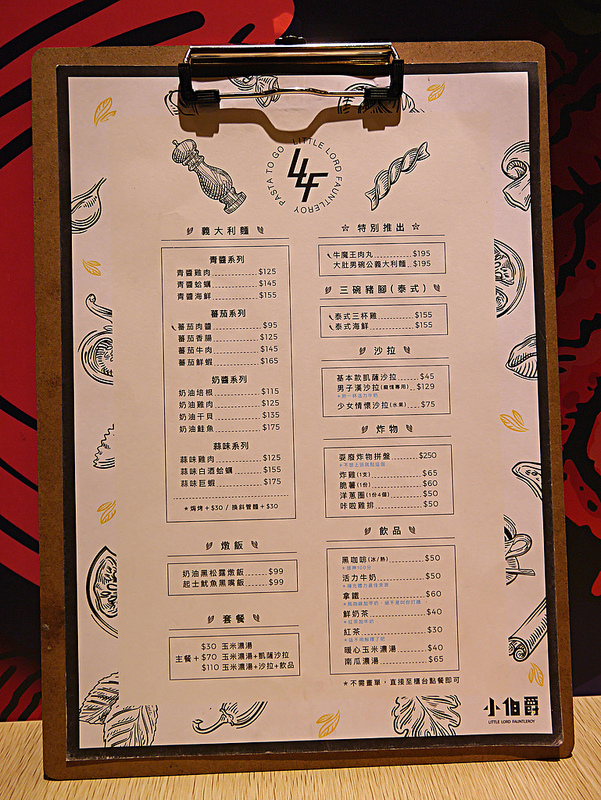 PASTA TO GO LITTLE LORD FAUNTLEROY
LLF
義大利麵
青醬系列
青醬雞肉 $125
青醬蛤蠣 $145
青醬海鮮 $155
蕃茄系列
蕃茄肉醬 $95
蕃茄香腸 $125
蕃茄牛肉 $145
蕃茄鮮蝦 $165
奶醬系列
奶油培根 $115
奶油雞肉 $125
奶油干貝 $135
奶油鮭魚 $175
蒜味系列
蒜味雞肉 $125
蒜味白酒蛤蠣 $155
蒜味巨蝦 $175
*焗烤+$30 / 換斜管麵+$30
燉飯
奶油黑松露燉飯 $99
起士魷魚黑嘴飯 $99
套餐
$30 玉米濃湯
主餐+ $70 玉米濃湯+凱薩沙拉
$110 玉米濃湯+沙拉+飲品
特別推出
牛魔王肉丸 $195
大肚男碗公義大利麵 $195
三碗豬腳(泰式)
泰式三杯雞 $155
泰式海鮮 $155
沙拉
基本款凱薩沙拉 $45
男子漢沙拉 $129
少女情懷沙拉(水果) $75
炸物
耍廢炸物拼盤 $250
炸雞(1支) $65
脆薯(1份) $60
洋蔥圈(1份4個) $50
咔啦雞排 $50
飲品
黑咖啡(冰/熱) $50
活力牛奶 $50
拿鐵 $60
鮮奶茶 $40
紅茶 $30
暖心玉米濃湯 $40
南瓜濃湯 $65
*不需畫單,直接至櫃台點餐即可
小伯爵
LITTLE LORD FAUNTLEROY